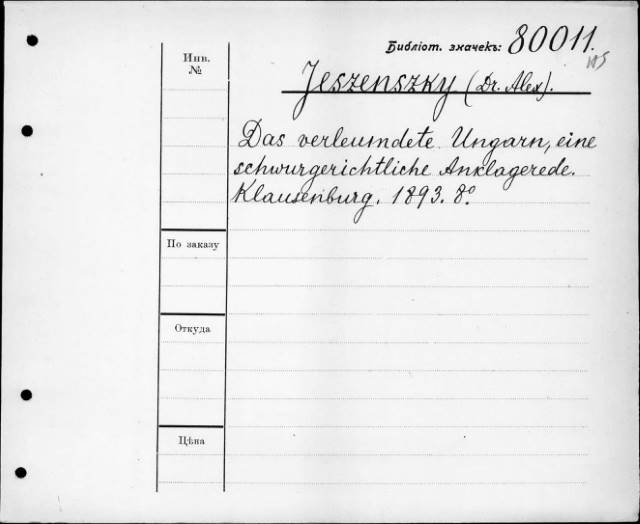 Библіот. значекъ: 80011.
Инв.
№
Jeszenszky (Dr. Alex).
Das verleumdete Ungarn, eine
schwurgerichtliche Anklagerede.
Klausenburg. 1893. 8º
По заказу
Откуда
Цѣна